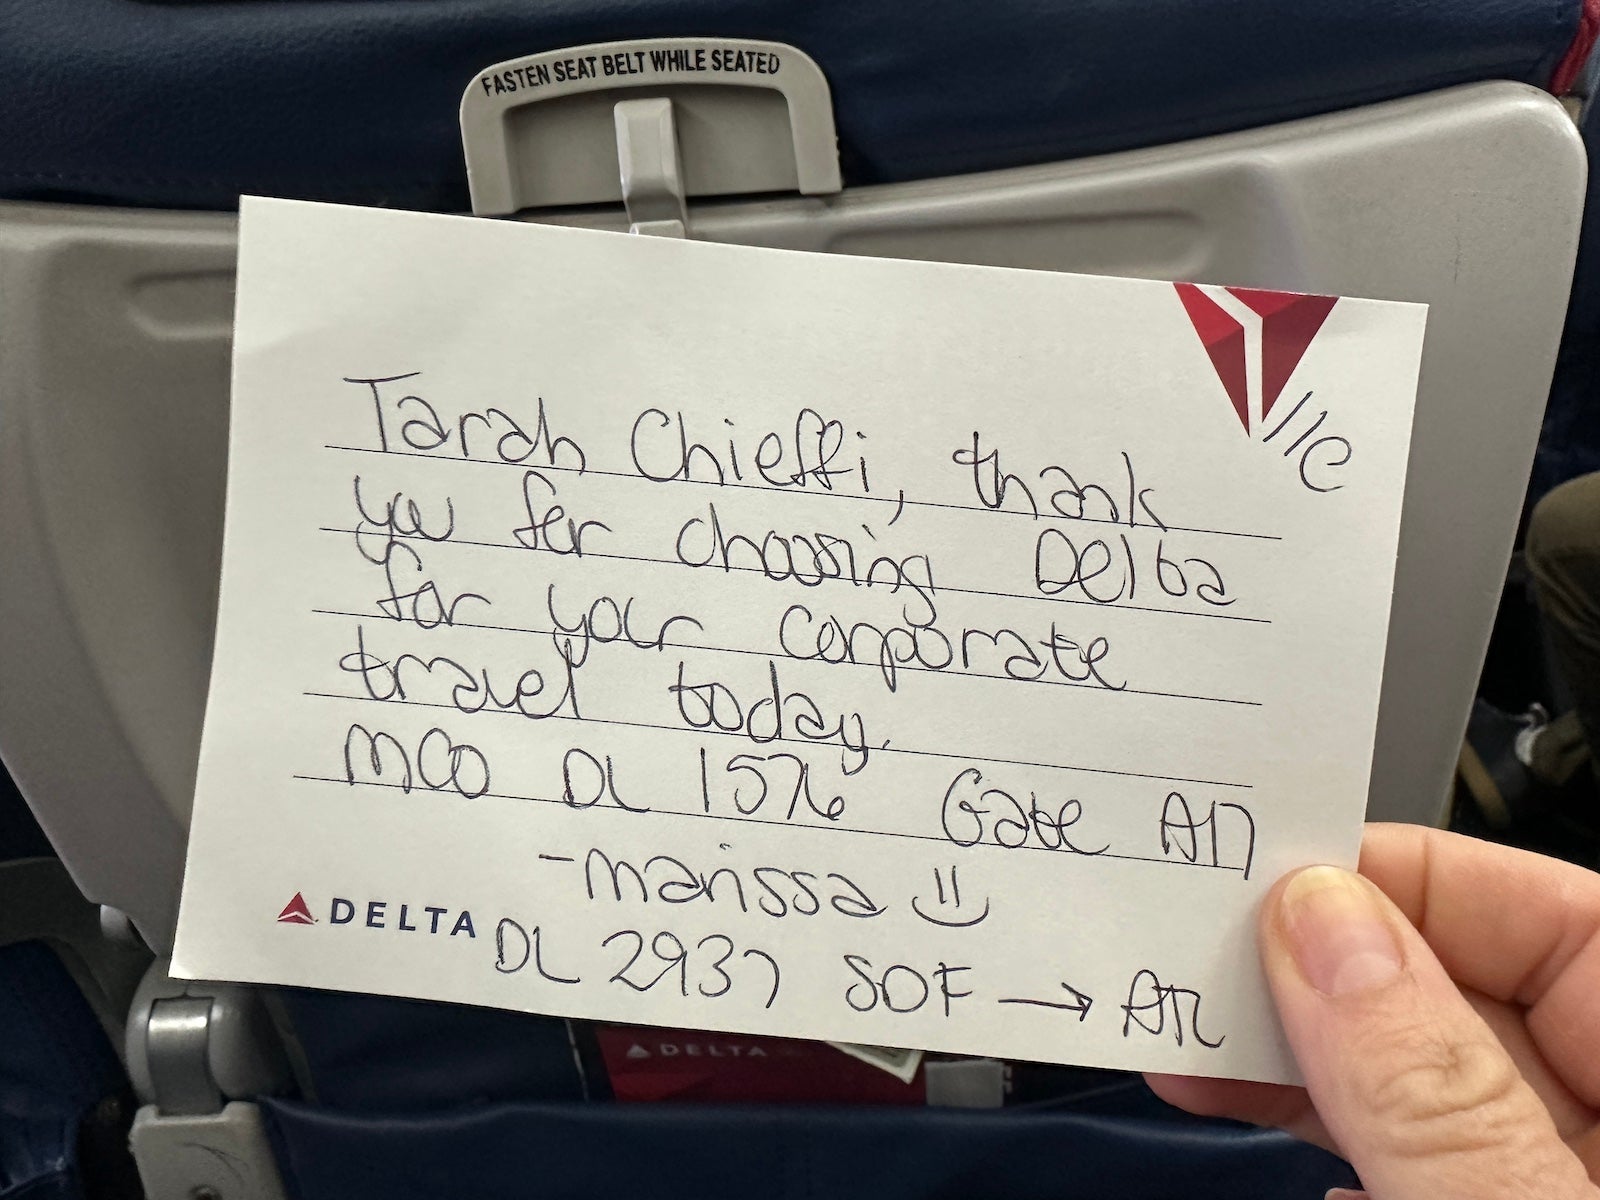 FASTEN SEAT BELT WHILE SEATED
Tarah Chieffi, thank
you for choosing Delta
for your corporate
travel today.
MCO DL 1576 Gate A17
-marissa
DELTA
DL 2937 SDF → ATL
DELTA